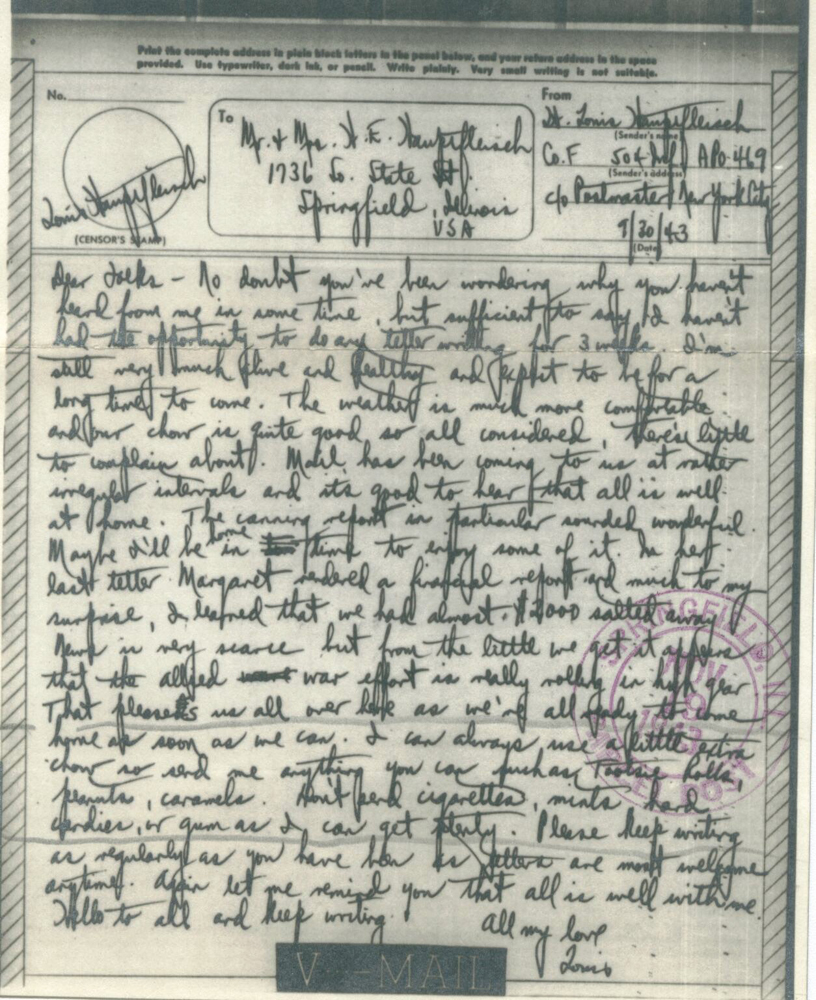 Print the complete address in plain block letters in the panel below, and your return address in the space
provided. Use typewriter, dark ink, or pencil. Write plainly. Very small writing is not suitable.
No.
To
Mr. & Mrs. H. E. Haupfleisch
1736 So. State St.
Springfield, Illinois
USA
From
Lt. Louis Haupfleisch
(Sender's name)
Co. F 504 Inf APO 469
(Sender's address)
c/o Postmaster New York City
9/30/43
(Date)
Louis Haupfleisch
(CENSOR'S STAMP)
Dear Folks - No doubt you've been wondering why you haven't
heard from me in some time, but sufficient to say I haven't
had the opportunity to do any letter writing for 3 weeks. I'm
still very much alive and healthy and expect to be for a
long time to come. The weather is much more comfortable
and our chow is quite good so all considered, there's little
to complain about. Mail has been coming to us at rather
irregular intervals and its good to hear that all is well
at home. The canning report in particular sounded wonderful.
Maybe I'll be home in time to enjoy some of it. In her
last letter Margaret rendered a financial report and much to my
surprise, I learned that we had almost $2000 salted away
News is very scarce but from the little we get it appears
that the allied war effort is really rolling in high gear.
That pleases us all over here as we're all ready to come
home as soon as we can. I can always use a little extra
chow so send me anything you can purchase, Tootsie Rolls,
peanuts, caramels. Don't send cigarettes, mints, hard
candies, or gum as I can get plenty. Please keep writing
as regularly as you have been as letters are most welcome
anytime. Again let me remind you that all is well with me.
Hello to all and keep writing.
All my love
Louis
V···-MAIL